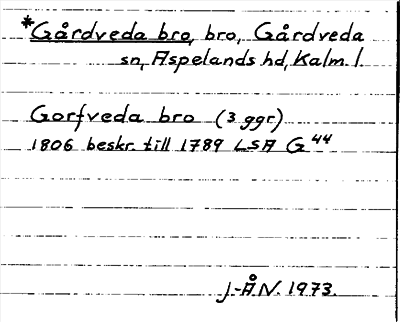 *Gårdveda bro, bro, Gårdveda
sn, Aspelands hd, Kalm. l.
Gorfveda bro (3 ggr)
1806 beskr. till 1789 LSA G44
J-Å N. 1973.